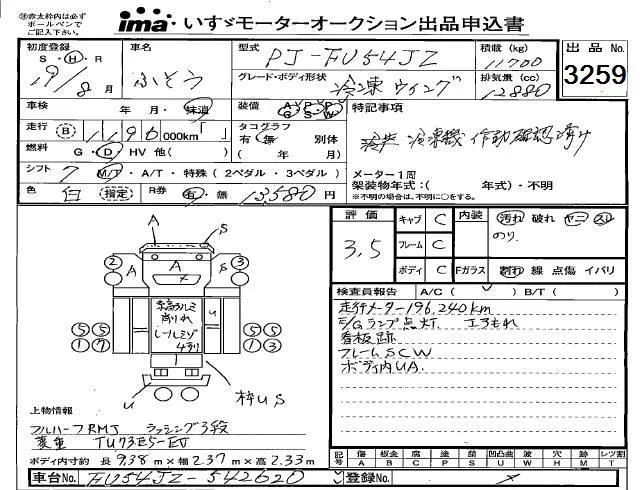 ※赤太枠内は必ず
ボールペンで
ご記入下さい。
ima いすゞモーターオークション出品申込書
初度登録 S・H・R 19/8月
車名 ふそう
型式 PJ-FU54JZ
積載(kg) 11700
出品No. 3259
グレード・ボディ形状 冷凍ウイング
排気量(cc) 12880
車検 年・月・抹消
装備 A/C P/S P/W
特記事項
走行 B 1196 000km「 」
タコグラフ 有 無 別体 ( 年 月)
冷凍機作動確認済け
燃料 G・D・HV 他( )
メーター1周
シフト 7 M/T・A/T・特殊(2ペダル・3ペダル)
架装物年式:( 年式)・不明
※不明の場合は、不明に○をする。
色 白 指定 R券 有・無 13,580円
評価 3.5
キャブ C
フレーム C
ボディ C
内装 汚れ 破れ ヤニ スレ
のり.
Fガラス 割れ 線 点傷 イバリ
検査員報告 A/C( ) B/T( )
走行メーター196,240km
E/Gランプ点灯. エアもれ
看板跡
フレームSCW
ボディ内UA.
A S
A S
A
2 3
2 3
u
レールミゾ
5 5 5 5
1 7 1 3
u 枠US
上物情報
フルハーフRMJ ラッシング3段
菱重 TU73E5-EJ
ボディ内寸約 長9.38m×幅2.37m×高2.33m
記号 傷A 板金B 腐C 塗P 錆S 凹凸曲U 波W 穴H 跡M 所々T レツ割
車台No. FU54JZ-542620
登録No.